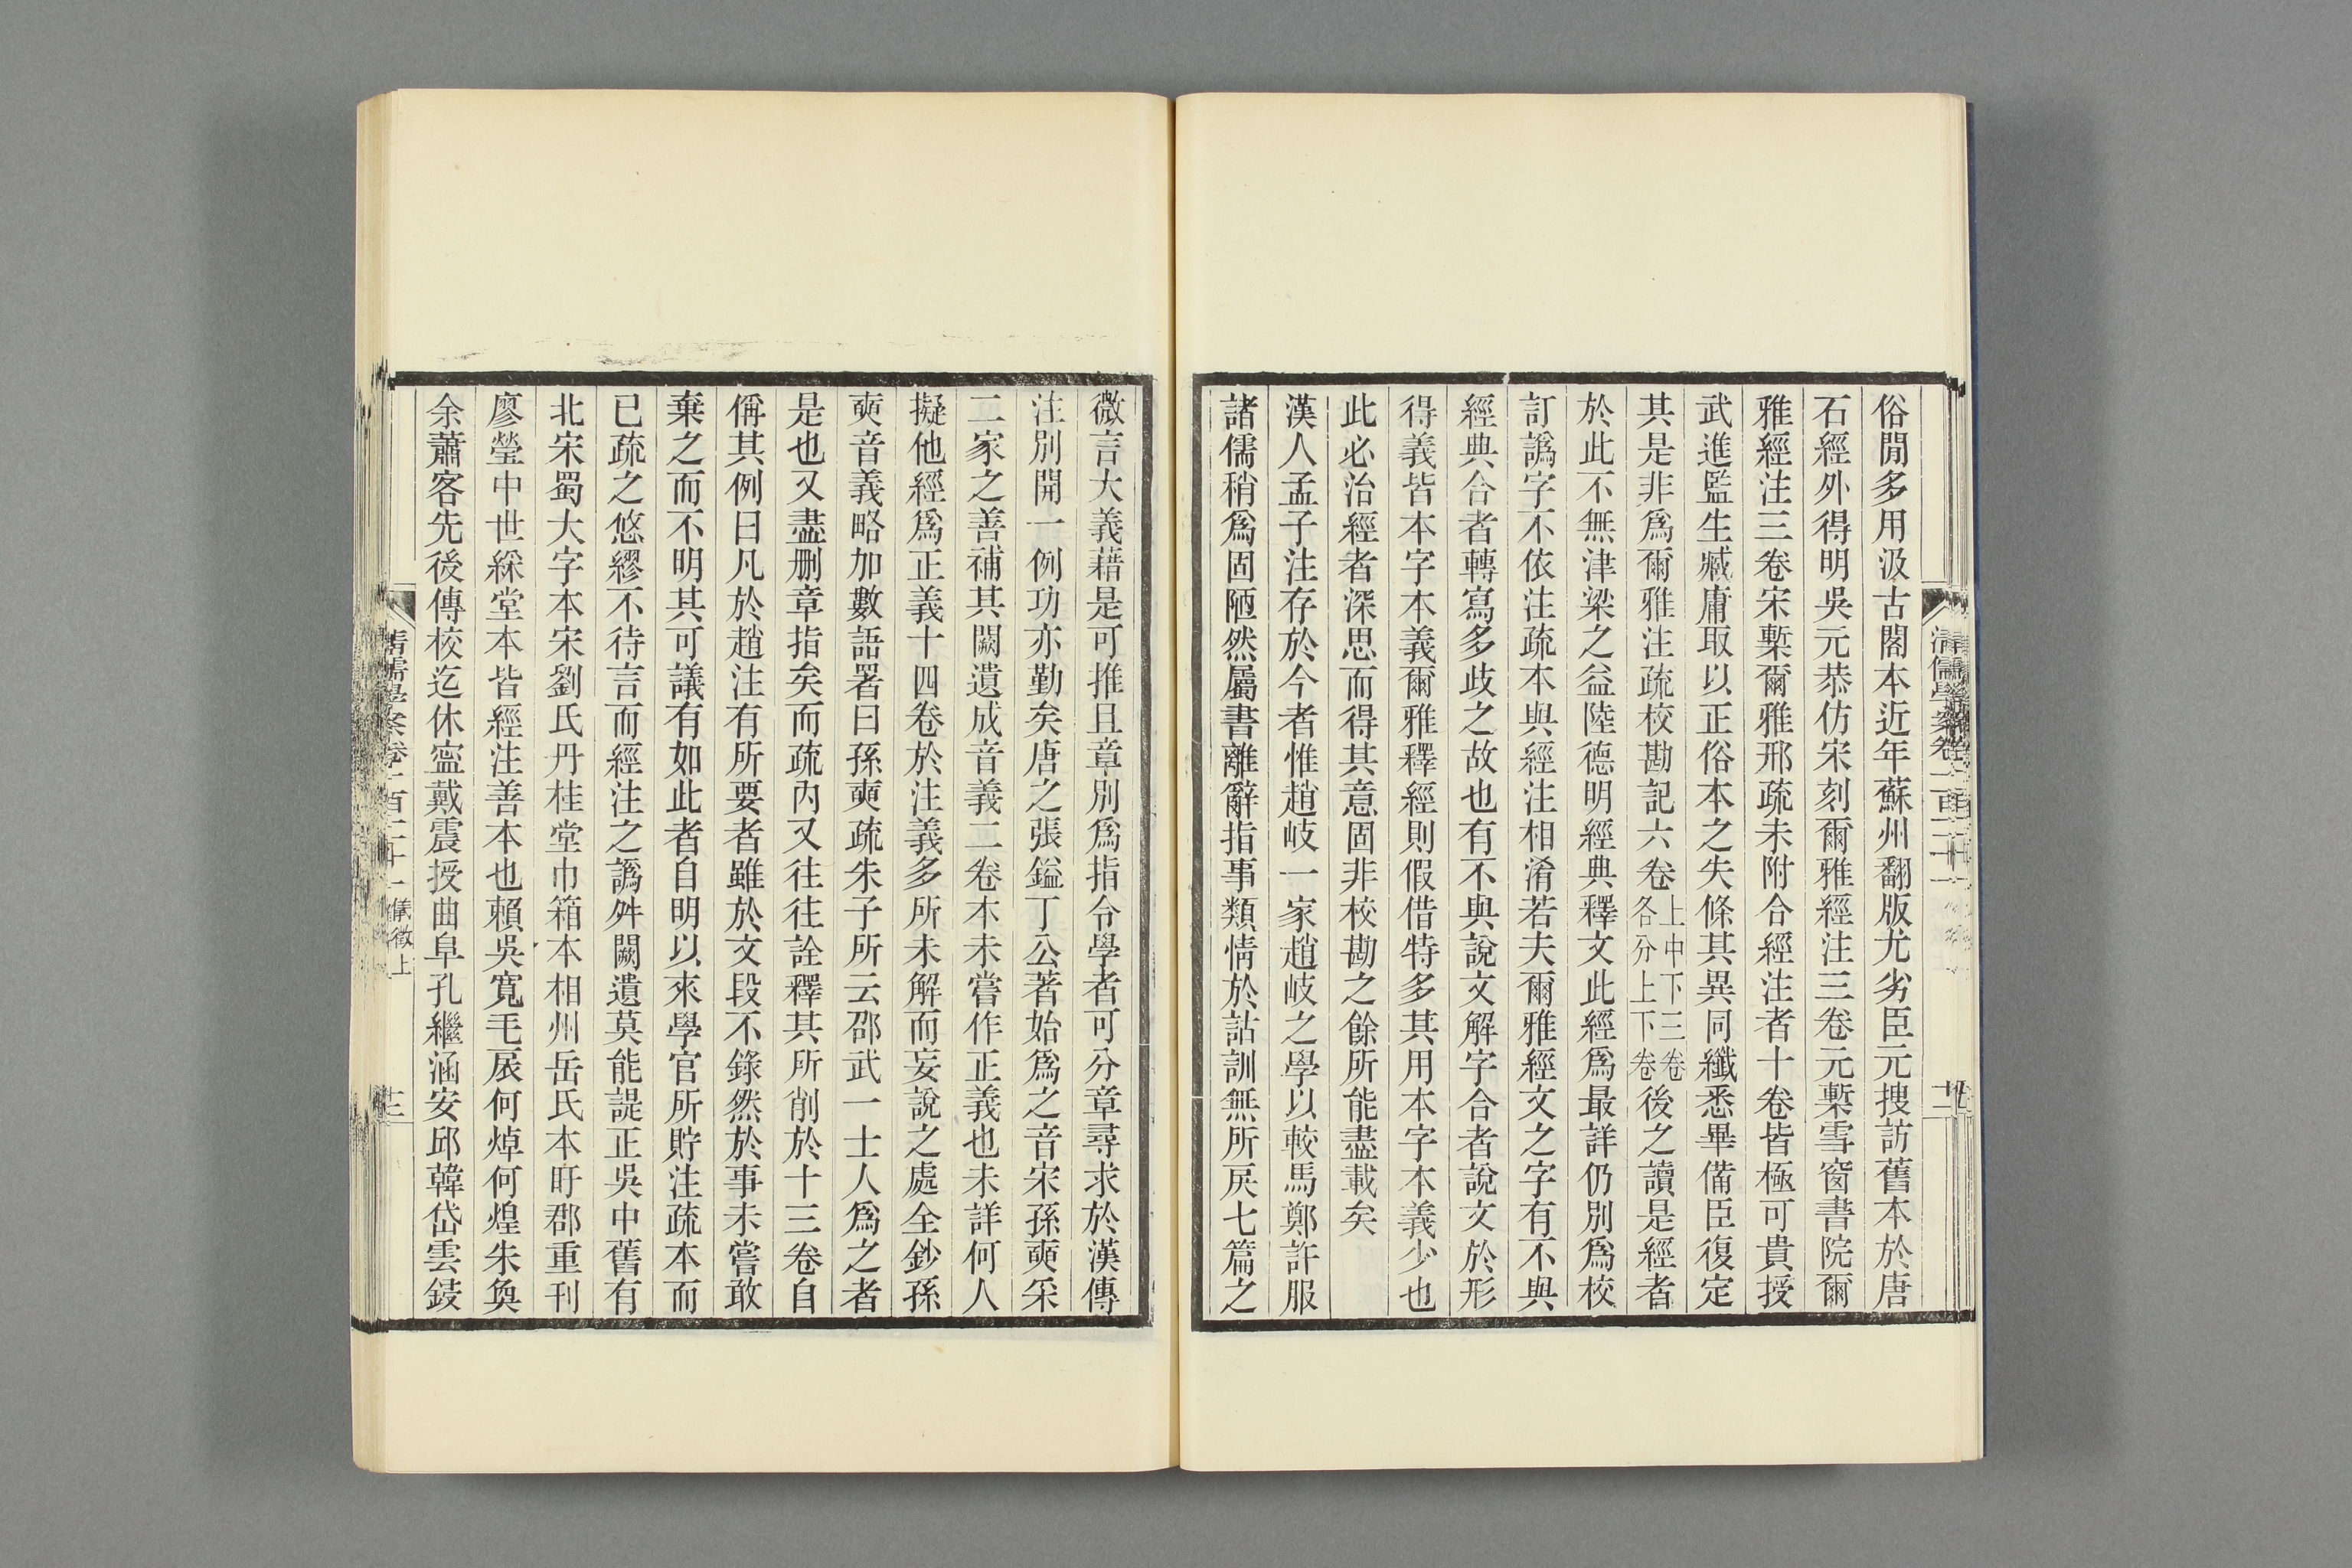 俗閒多用汲古閣本近年蘇州翻版尤劣臣元搜訪舊本於唐
石經外得明吳元恭仿宋刻爾雅經注三卷元槧雪窗書院爾
雅經注三卷宋槧爾雅邢疏未附合經注者十卷皆極可貴授
武進監生臧庸取以正俗本之失條其異同纖悉畢備臣復定
其是非爲爾雅注疏校勘記六卷上中下三卷各分上下卷後之讀是經者
於此不無津梁之益陸德明經典釋文此經爲最詳仍別爲校
訂譌字不依注疏本與經注相淆若夫爾雅經文之字有不與
經典合者轉寫多歧之故也有不與說文解字合者說文於形
得義皆本字本義爾雅釋經則假借特多其用本字本義少也
此必治經者深思而得其意固非校勘之餘所能盡載矣
漢人孟子注存於今者惟趙岐一家趙岐之學以較馬鄭許服
諸儒稍爲固陋然屬書離辭指事類情於詁訓無所戾七篇之
微言大義藉是可推且章別爲指令學者可分章尋求於漢傳
注別開一例功亦勤矣唐之張鎰丁公著始爲之音宋孫奭采
二家之善補其闕遺成音義二卷本未嘗作正義也未詳何人
擬他經爲正義十四卷於注義多所未解而妄說之處全鈔孫
奭音義略加數語署曰孫奭疏朱子所云邵武一士人爲之者
是也又盡刪章指矣而疏內又往往詮釋其所削於十三卷自
偁其例曰凡於趙注有所要者雖於文段不錄然於事未嘗敢
棄之而不明其可議有如此者自明以來學官所貯注疏本而
已疏之悠繆不待言而經注之譌舛闕遺莫能諟正吳中舊有
北宋蜀大字本宋劉氏丹桂堂巾箱本相州岳氏本盱郡重刊
廖瑩中世綵堂本皆經注善本也賴吳寬毛扆何焯何煌朱奐
余蕭客先後傳校迄休寧戴震授曲阜孔繼涵安邱韓岱雲鋟
清儒學案卷一百二十一 儀徵上